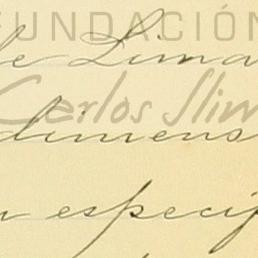 FUNDACIÓN
de Lima
Carlos Slim
dimens
n especif